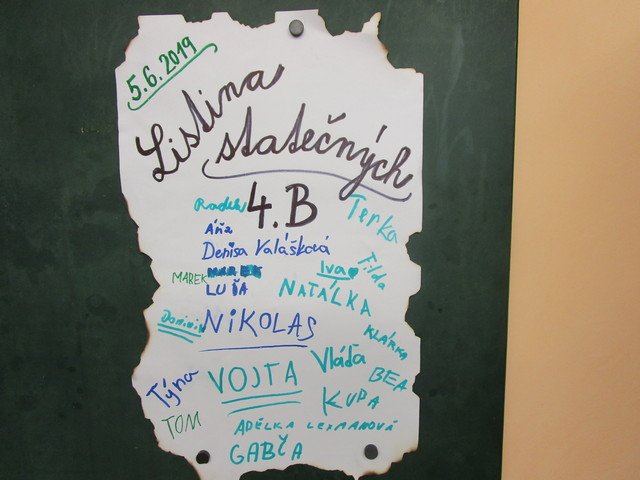 5.6.2019
Listina
statečných
4.B
Radek
Terka
Áňa
Denisa Valášková
Iva
Tilda
MAREK
LUĎA
NATÁLKA
Dominik
NIKOLAS
KLÁRKA
Vláďa
BEA
Týna
VOJTA
KUPA
TOM
ADÉLKA LEXMANOVÁ
GABČA